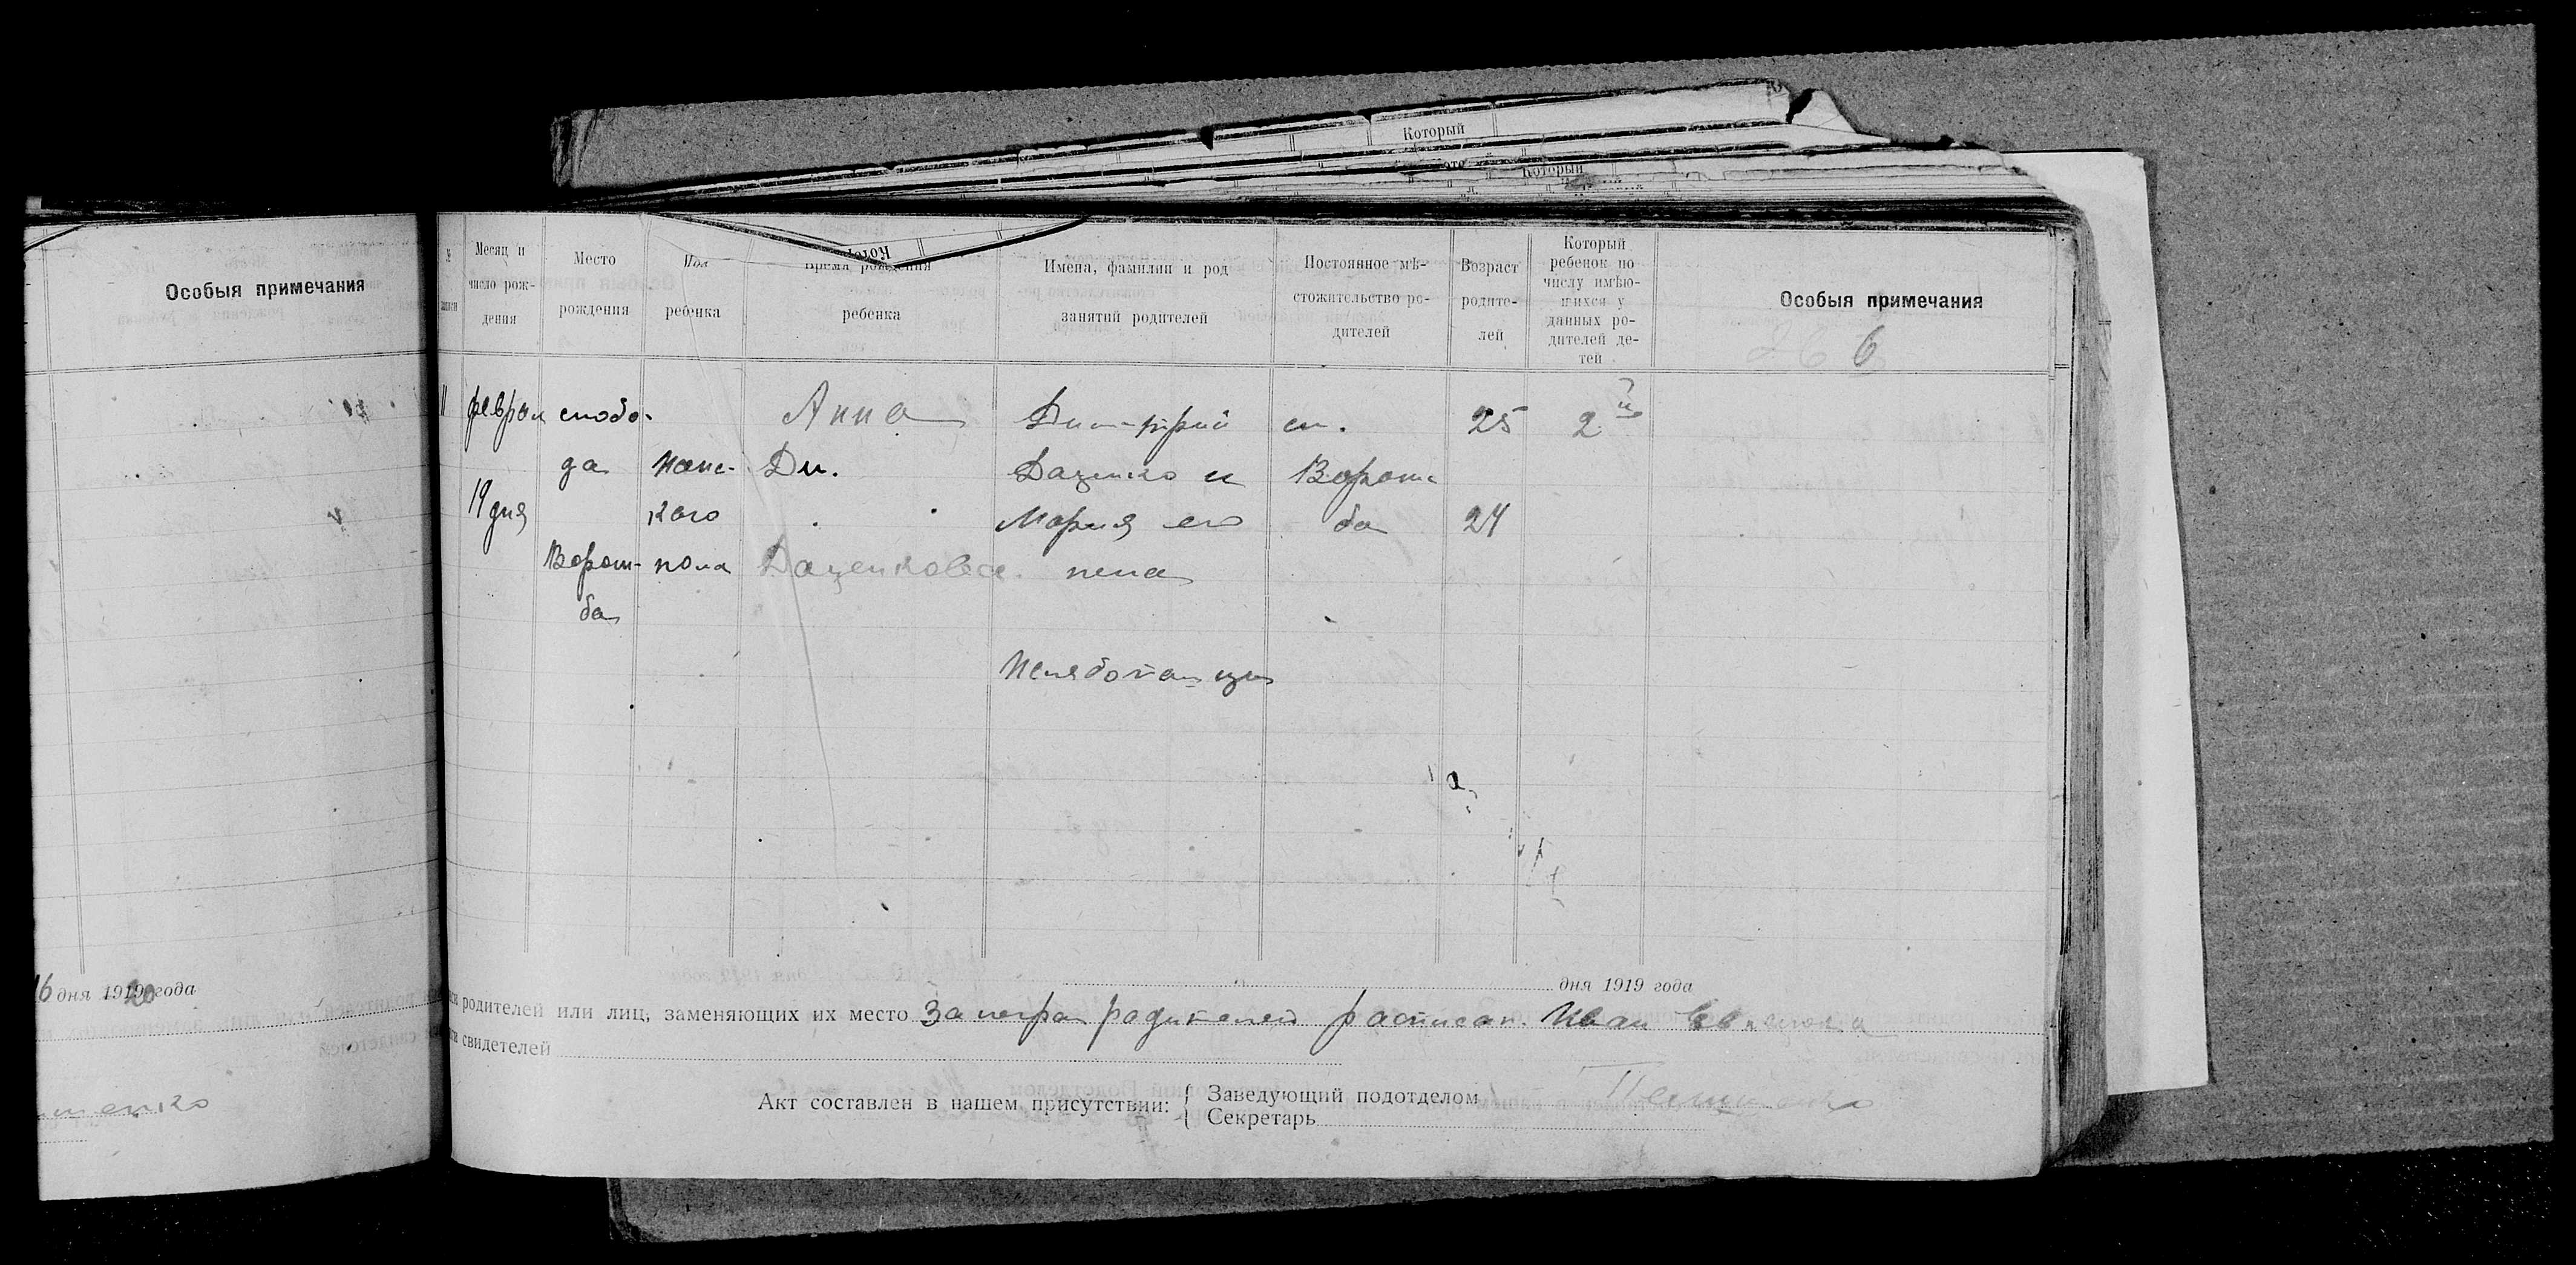 Который
Который
Особыя примечания
№ записи
Месяц и число рождения
Место рождения
Пол ребенка
Время рождения ребенка
Имена, фамилии и род занятий родителей
Постоянное мѣстожительство родителей
Возраст родителей
Который ребенок по числу имѣющихся у данных родителей детей
Особыя примечания
6
11 феврал слобо- Анна Дмитрий сл. 25 2й
да женс- Дм. Даценко и Ворож-
19 дня кого Мария его ба 24
Ворож- пола жена
ба
16 дня 1919 года
20
дня 1919 года
родителей или лиц, заменяющих их место За неграм родителей расписал. Иван
свидетелей
Акт составлен в нашем присутствии:
Заведующий подотделом
Секретарь